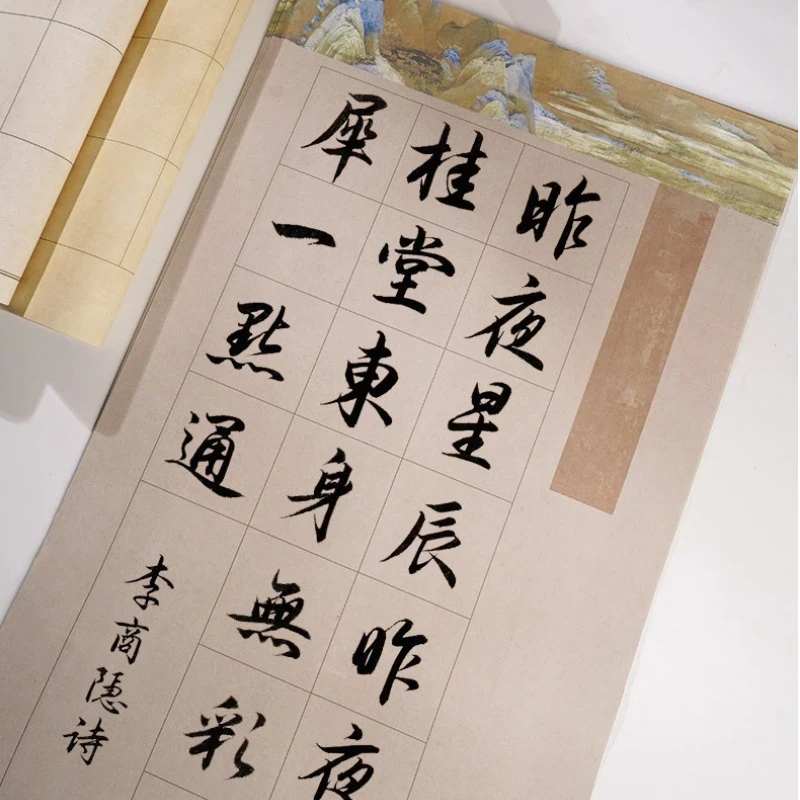 昨夜星辰昨夜
桂堂東身無彩
犀一點通
李商隱诗